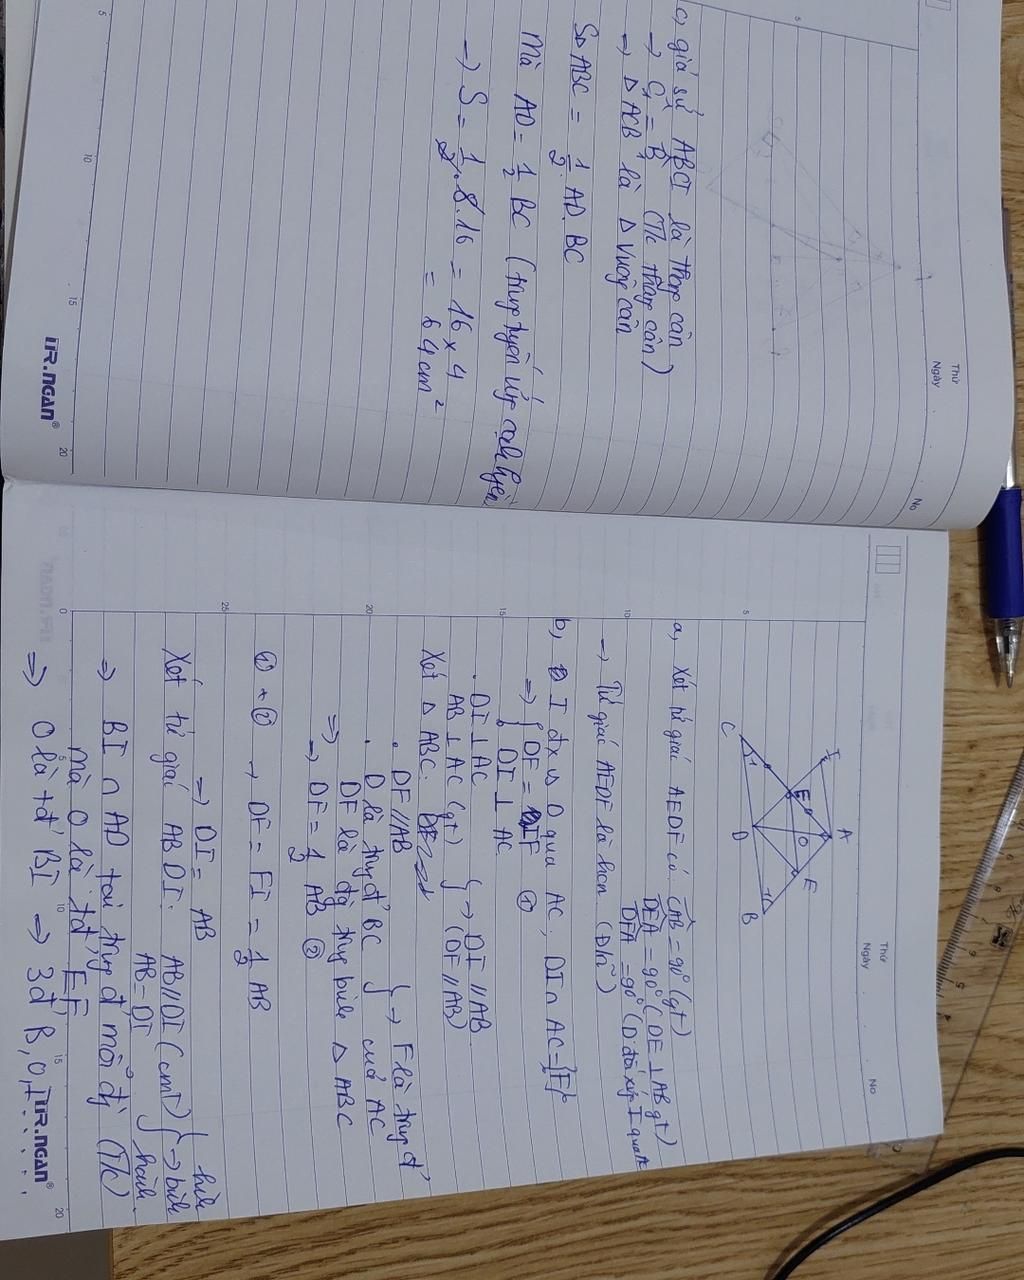 Thứ
Ngày
No
5
c, giả sử ABCI là thang cân
→ Ĉ₁ = B̂₁ (Tc thang cân)
→ Δ ACB là Δ vuông cân
SΔ ABC = 1/2 AD. BC
mà AD = 1/2 BC (trung tuyến ứng cạnh huyền
→ S = 1/2 . 8.16 = 16 × 4
= 64cm²
5 10 15 20
TR.NGAN®
Thứ
Ngày
No
I A
E O E
C D B
1
5
a, Xét tứ giác AEDF có CAB = 90° (gt)
DEA = 90° (DE ⊥ AB gt)
DFA = 90° (D đối xứng I qua AC
→ Tứ giác AEDF là hcn (Dhn)
10
b, I đx vs D qua AC, DI ∩ AC = {F}
⇒ { DF = IF ①
DI ⊥ AC
15
. DI ⊥ AC
AB ⊥ AC (gt) } → DI // AB
(DF // AB)
Xét Δ ABC.
. DF // AB
. D là trung đ' BC } → F là trung đ'
của AC
20
⇒ DF là đg trung bình Δ ABC
→ DF = 1/2 AB ②
① + ② → DF = FI = 1/2 AB
25
⇒ DI = AB
Xét tứ giác ABDI: AB // DI (cmt)
AB = DI } → hình bình hành
⇒ BI ∩ AD tại trung đ' mỗi đg (Tc)
mà O là tđ' EF
⇒ O là tđ' BI ⇒ 3đ' B, O, I ....
0 5 10 15 20
TR.NGAN®